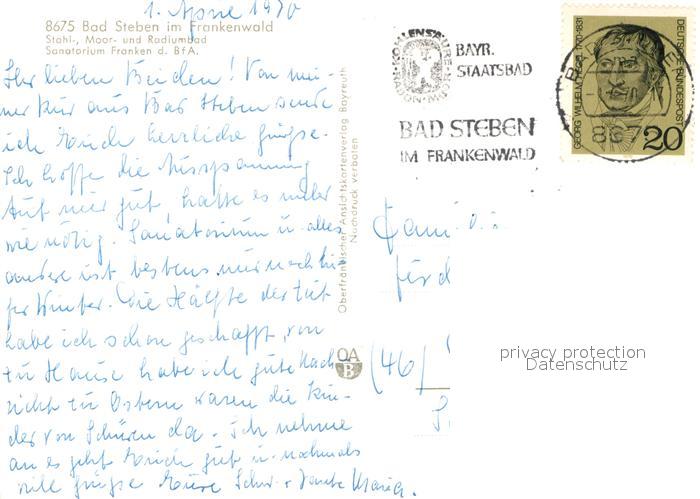 1. April 1970
8675 Bad Steben im Frankenwald
Stahl-, Moor- und Radiumbad
Sanatorium Franken d. BfA.
Ihr lieben Beiden! Von mei-
ner Kur aus Bad Steben sende
ich Euch herzliche Grüsse.
Ich hoffe die Ausspannung
tut mir gut hatte es mehr
wie nötig. Sanatorium u. alles
andere ist bestens nur noch tie-
fer Winter. Die Hälfte der Zeit
habe ich schon geschafft, von
zu Hause habe ich gute Nach-
richt zu Ostern waren die Kin-
der von Schüren da. Ich nehme
an es geht Euch gut u. nochmals
viele Grüsse Eure Schw. + Tante Maria.
Oberfränkischer Ansichtskartenverlag Bayreuth
Nachdruck verboten
OA
B
KOHLENSÄURE
RADON
BAYR.
STAATSBAD
BAD STEBEN
IM FRANKENWALD
GEORG WILHELM HEGEL 1770-1831
DEUTSCHE BUNDESPOST
20
867
Fam.
für d
(46)
privacy protection
Datenschutz